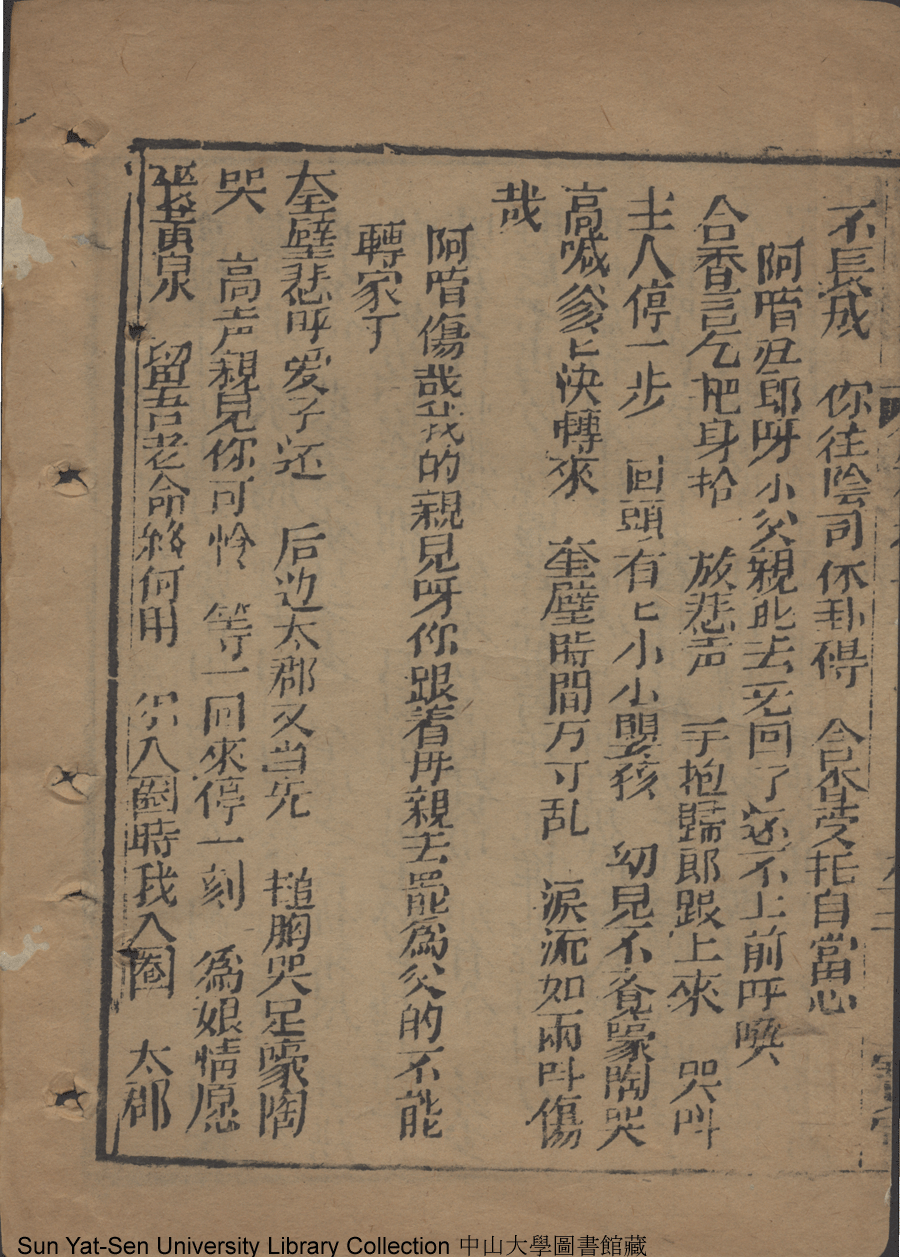 不長成　你徃陰司休卦碍　含悲受托自當心
阿唷丑郎呀小父親此去无回了还不上前呼喚
合香言乞把身抬　放悲声　手抱歸郎跟上來　哭叫
主人停一步　回頭有匕小小嬰孩　幼見不覚嚎陶哭
高喊爹匕快轉來　奎璧時間方寸乱　淚流如雨叫傷
哉
阿唷傷哉我的親兒呀你跟着母親去罷為父的不能
轉家了
奎璧悲呼爱子还　后边太郡又当先　搥胸哭足嚎陶
哭　高声親兒你可怜　等一回來停一刻　為娘情愿
黃泉　留吾老命終何用　你入圈時我入圈　太郡
Sun Yat-Sen University Library Collection 中山大學圖書館藏